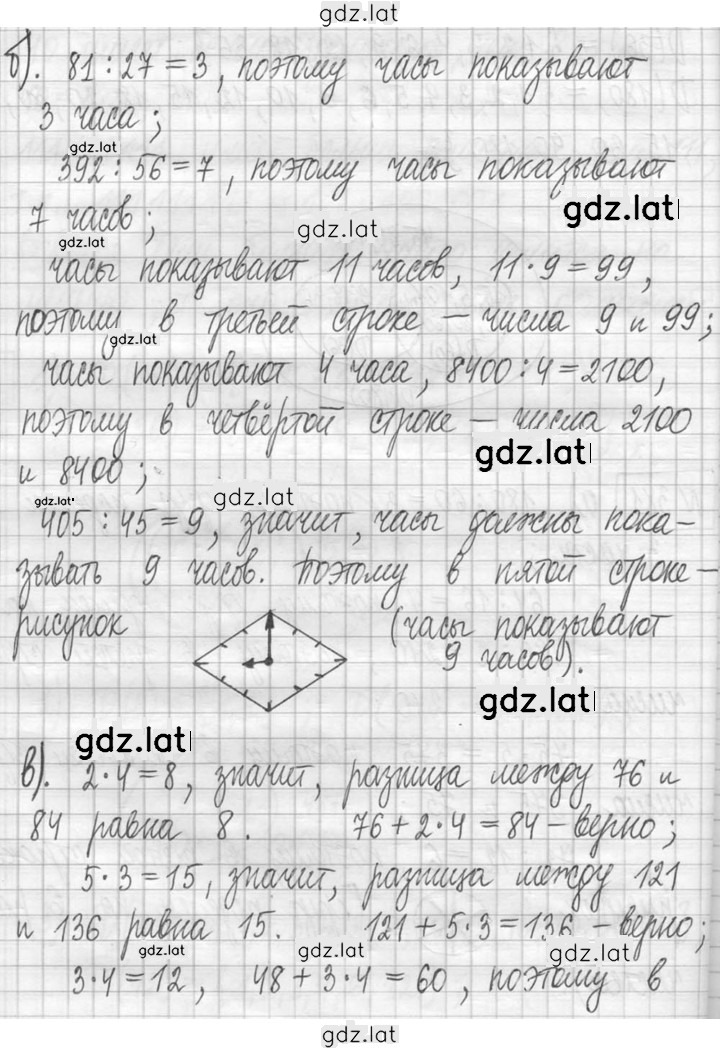 gdz.lat
б). 81 : 27 = 3, поэтому часы показывают
3 часа;
gdz.lat
392 : 56 = 7, поэтому часы показывают
7 часов;
gdz.lat
gdz.lat
часы показывают 11 часов, 11 · 9 = 99,
поэтому в третьей строке – числа 9 и 99;
gdz.lat
часы показывают 4 часа, 8400 : 4 = 2100,
поэтому в четвёртой строке – числа 2100
и 8400;
gdz.lat
gdz.lat
gdz.lat
405 : 45 = 9, значит, часы должны пока-
зывать 9 часов. Поэтому в пятой строке –
рисунок (часы показывают
9 часов).
gdz.lat
gdz.lat
в). 2 · 4 = 8, значит, разница между 76 и
84 равна 8. 76 + 2 · 4 = 84 – верно;
5 · 3 = 15, значит, разница между 121
и 136 равна 15. 121 + 5 · 3 = 136 – верно;
gdz.lat
gdz.lat
gdz.lat
3 · 4 = 12, 48 + 3 · 4 = 60, поэтому в
gdz.lat